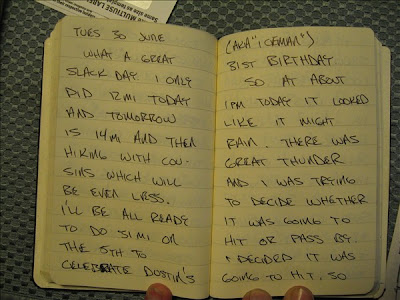 MULTIUSE LABEL
TUES 30 JUNE
WHAT A GREAT
SLACK DAY I ONLY
DID 12MI TODAY
AND TOMORROW
IS 14MI AND THEN
HIKING WITH COU-
SINS WHICH WILL
BE EVEN LESS.
I'LL BE ALL READY
TO DO 31 MI ON
THE 5TH TO
CELEBRATE DUSTIN'S
(AKA "ICEMAN")
31ST BIRTHDAY
SO AT ABOUT
1PM TODAY IT LOOKED
LIKE IT MIGHT
RAIN. THERE WAS
GREAT THUNDER
AND I WAS TRYING
TO DECIDE WHETHER
IT WAS GOING TO
HIT OR PASS BY.
I DECIDED IT WAS
GOING TO HIT. SO